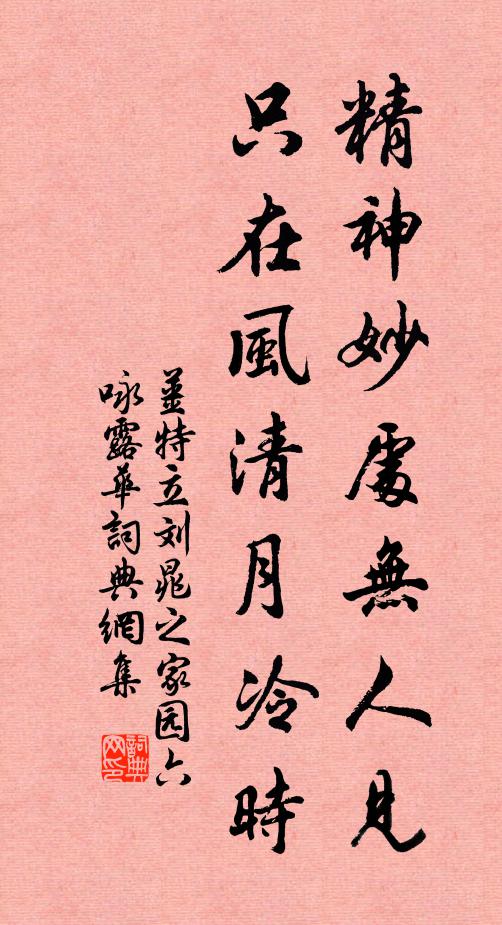 精神妙處無人見
只在風清月冷時
姜特立刘晁之家园六
咏露华詞典網集
詞典
网印